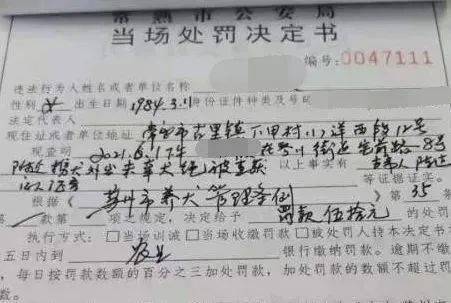 常熟市公安局
当场处罚决定书
编号:0047111
违法行为人姓名或者单位名称
性别 女 出生日期 1984.3.11 身份证件种类及号码
法定代表人
现住址或者单位地址 常熟市古里镇 村 洋西段12号
现查明 2021.6.17年 在琴川街道 路8号
附近携犬外出未牵犬绳被查获 以上事实有 当事人陈述
等证据证实。
根据《苏州市养犬管理条例》第35
条第 款第 项之规定,决定给予 罚款伍拾元 的处罚
执行方式:□当场训诫 □当场收缴罚款 □被处罚人持本决定书
五日内到 农业 银行缴纳罚款。逾期不缴
,每日按罚款数额的百分之三加处罚款,加处罚款的数额不超过罚
数。